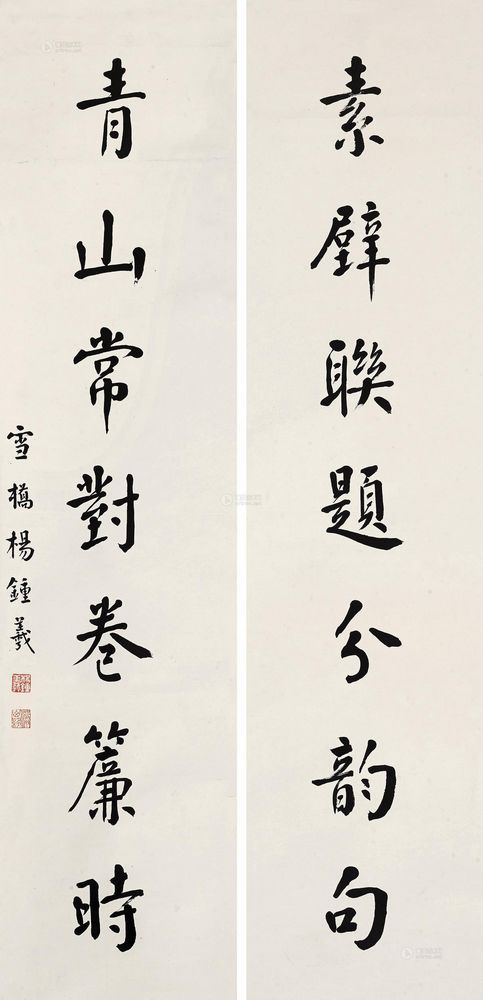 素壁聯題分韵句
青山常對卷簾時
雪橋楊鍾羲